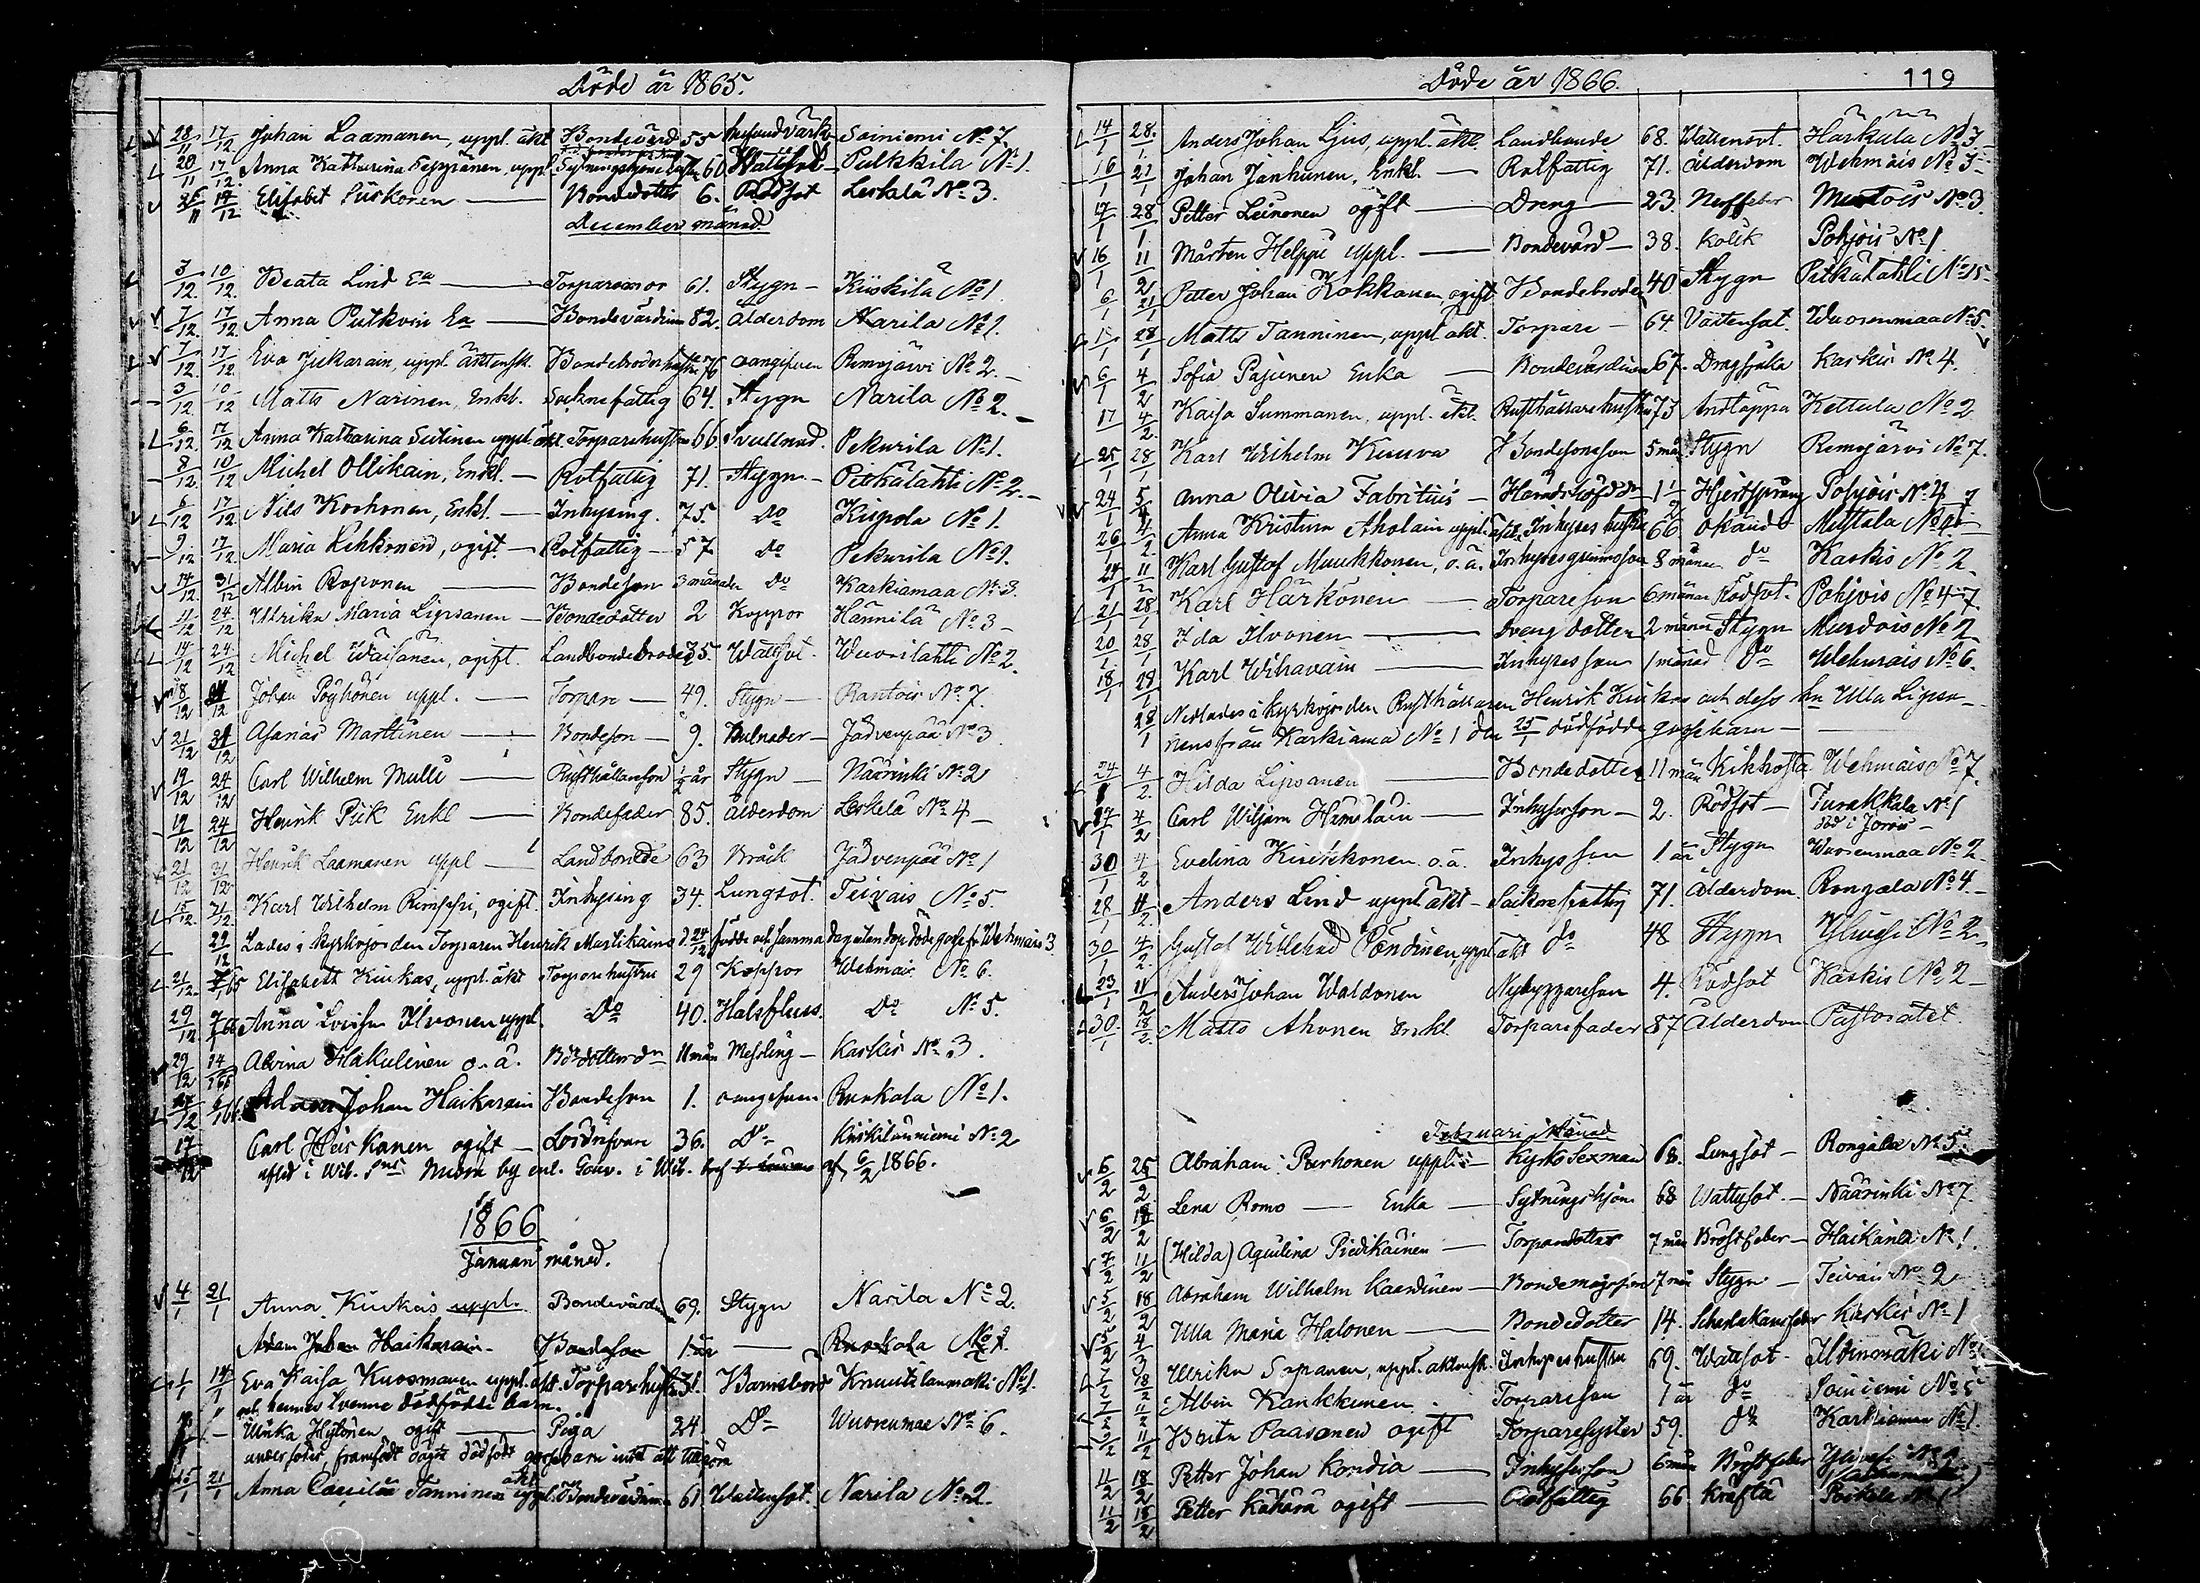 Döde år 1865.
28/11 17/12 Johan Laamanen, uppl. äkt Bondevärd 55 hufvudvärk Soiniemi No 7.
20/11 17/12. Anna Katharina Seppänen, uppl Sytningshjons hustru 60 Wattsot Pulkkila No 1.
26/11 17/12 Elisabet Piiskonen Bondedotter 6. Rödsot Leskelä No 3.
December månad.
3/12. 10/12. Beata Lind Ea Torparemor 61. Stygn Kiiskilä No 1
7/12. 17/12. Anna Putkoin Ea Bondevärdinna 82. Ålderdom Narila No 1.
7/12 17/12. Eva Jukarain, uppl. äktensk. Bondebroders hustru 76 oangifven Remojärvi No 2.
3/12 10/12 Matts Narinen, Enkl. Socknefattig 64. Stygn Narila No 2.
6/12. 17/12 Anna Katharina Seitinen uppl. äkt. Torparehustru 66. Svullnad. Pekurila No 1.
8/12. 10/12 Michel Ollikain, Enkl. Rotfattig 71. Stygn Pitkälahti No 2.
6/12 17/12. Nils Korhonen, Enkl. Inhysing. 75. do Kiipola No 1.
9/12 17/12. Maria Lehkonen, ogift. Rotfattig 57 do Pekurila No 1.
14/12. 31/12 Albin Roponen Bondeson 3 månader do Karkiamaa No 3.
11/12 24/12 Ulrika Maria Lipsanen Bondedotter 2 Koppor Hännilä No 3
14/12 24/12 Michel Wäisänen, ogift. Landbondebroder 35. Wattsot Wuorilahti No 2
18/12 Johan Pöyhönen uppl. Torpare 49. Stygn Rantois No 7.
21/12 31/12 Asarias Marttinen Bondeson 9. Bulnader Jädvenpää No 3
19/12 24/12 Carl Wilhelm Mulli Rusthållareson 1/2 år Stygn Näärinki No 2
19/12 24/12 Henrik Piik Enkl Bondefader 85. ålderdom Leskelä No 4
21/12 31/12 Henrik Laamanen uppl Landbonde 63 Bråck Jädvenpää No 1
15/12. 31/12. Karl Wilhelm Rimppi, ogift. Inhysing 34. Lungsot. Teivais No 5.
29/12 Lades i kyrkojorden Torparen Henrik Martikains d. 24/12 födde och samma dag utan dop döde gosse fr. Wehmais 3
21/12. 7/1 65 Elisabeth Kiukas, uppl. äkt Torparehustru 29 Koppor Wehmais No 6.
29/12 7/1 66 Anna Lovisa Ilvonen uppl Do 40. Halsfluss. Do No 5.
29/12 14/1 66 Alvina Hakulinen o. ä. 11 mån Messling Kaskis No 3.
Adam Johan Haikarain Bondeson 1. oangifven Ruokola No 1.
17/12 Carl Heiskanen ogift 36. Do Kiiskilänniemi No 2
1866.
1866
Januari månad.
4/1 21/1 Anna Kiukas uppl. Bondevärdinna 69. Stygn Narila No 2.
Adam Johan Haikarain. Bondeson 1 år Ruokola No 1.
1/1 14/1 Eva Kaisa Kuosmanen uppl. äkt. Torparehustru 31. Barnsbörd Knuutilanmäki No 1.
hennes tvenne dödfödde barn.
Ulrika Hytönen ogift Piga 24. Do Wuorenmaa No 6.
15/1 21/1 Anna Cæcilia Tanninen uppl. äkt. Bondevärdinna 61 Wattensot. Narila No 2.
Döde år 1866. 119
14/1 28/1 Anders Johan Ljus, uppl. äkt. Landbonde 68. Wattensot. Härkälä No 3
16/1 21/1 Johan Janhunen, Enkl. Rotfattig 71. Ålderdom Wehmais No 3
17/1 28/1 Petter Leinonen ogift Dreng 23. Nerffeber Murtois No 3.
16/1 11/2 Mårten Helppi uppl. Bondevärd 38. Kolik Pohjois No 1
6/1 21/1 Petter Johan Kokkonen, ogift Bondebroder 40 Stygn Pitkälahti No 15
15/1 28/1 Matts Tanninen, uppl äkt. Torpare 64. Vattensot. Wuorenmaa No 5.
6/1 4/2 Sofia Pajunen Enka Bondevärdinna 67. Dragsjuka Kaskis No 4.
17/1 4/2. Kaisa Summanen, uppl. äkt. Rusthållarehustru 73 Andtäppa Kettula No 2
25/1 28/1 Karl Wilhelm Kuuva Bondesonson 5 mån Stygn Remojärvi No 7.
24/1 5/4 Anna Olivia Fabritius Häradshöfd. dr 1 1/2 Hjertsprång Pohjois No 4
26/1 4/2. Anna Kristina Aholain uppl. äkt. Inhyses hustru 66 okänd Mettala No 4
24/1 11/2 Karl Gustaf Muukkonen, o. ä. Inhysesqvinnoson 8 månar do Kaskis No 2
21/1 28/1 Karl Härkönen Torpareson 6 månar Rödsot. Pohjois No 4-7
20/1 28/1 Ida Ilvonen Dreng dotter 2 månar Stygn Murdois No 2
18/1 28/1 Karl Wihavain Inhyses son 1 månad do Wehmais No 6.
28/1 Nedlades i kyrkojorden Rusthållaren Henrik Kiukas och dess hu Ulla Lipsa-
nens från Karkiamaa No 1 den 25/1 dödfödde gossebarn
24/1 4/2. Hilda Lipsanen Bondedotter 11 mån Kikhosta Wehmais No 7.
27/1 4/2 Carl Wiljam Hämäläin Inhyseson 2. Rödsot Turakkala No 1
död i Jorois
30/1 4/2 Evelina Kiukkonen o. ä. Inhys son 1 år Stygn Wuorenmaa No 2
28/1 11/2. Anders Lind uppl äkt Socknefattig 71. Ålderdom Rongala No 4
30/1 4/2. Gustaf Willehad Pöndinen, uppl äkt do 48 Stygn Ylivesi No 2
23/1 11/2 Anders Johan Waldonen Nybyggareson 4. Rödsot Kaskis No 2
30/1 18/2. Matts Ahonen Enkl. Torparefader 87 Ålderdom Pastoratet
Februari Månad
6/2 25/2 Abraham Purhonen uppl. Kyrko Sexman 68. Lungsot Rongala No 5
6/2 18/2 Lena Romo Enka Sytningshjon 68 Wattusot. Näärinki No 7
7/2 11/2 (Hilda) Aqulina Pietikäinen Torparedotter 7 mån Bröstfeber Haikäinlä No 1.
5/2 18/2 Abraham Wilhelm Kaartinen Bondemågson 7 mån Stygn Teivais No 2
5/2 4/3 Ulla Maria Halonen Bondedotter 14. Scharlakansfeber Kaskis No 1
Ulrika Sopanen, uppl. äktensk. Inhyseshustru 69. Wattsot
Albin Kankkunen Torpareson 1 år do Soiniemi No 5
9/2 11/2 Brita Paasonen ogift Torparesyster 59. do Karkiamaa No 1.
11/2 18/2 Petter Johan Kondia Inhyseson 6 mån Bröstfeber Ylivesi
11/2 18/2 Petter Kähärä ogift Rotfattig 66 Kräfta